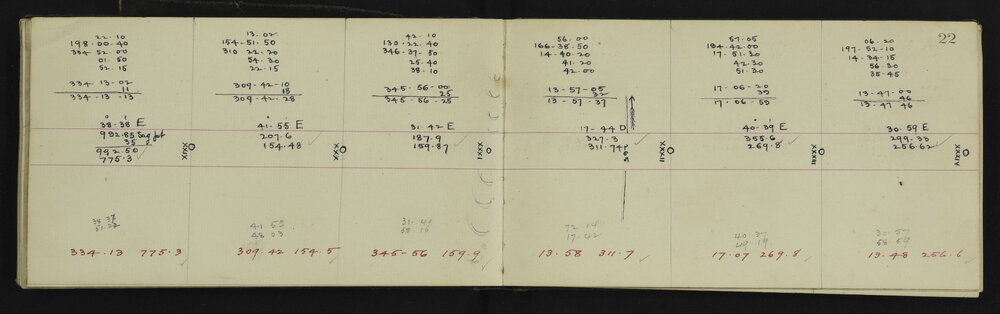 22
22.10
198.00.40
334.52.00
01.50
52.15
334-13-02
11
334-13-13
38-38 E
992.85 Seg fot
35
992.50
775.3
XXIX
334.13 775.3
13.02
154-51.50
310.22.20
54.30
22.15
309-42-10
18
309-42-28
41-55 E
207.6
154.48
XXX
41 53
48 03
309-42 154.5
42.10
130.22.40
346.37.50
25.40
38.10
345-56-00
25
345-56-25
31-42 E
187.9
159.87
XXXI
345-56 159.9
56.00
166-38.50
14-40.20
41.20
42.00
13-57-05
32
13-57-37
17-44 D
327.3
311.74
XXXII
72 14
17.42
13.58 311.7
57.05
184.42.00
17.51.30
42.30
51.30
17-06-20
39
17-06-59
40-39 E
355.6
269.8
XXXIII
40 37
49 19
17.07 269.8
06.20
197.52-10
14-34.15
56.30
35.45
13-47-00
46
13-47 46
30.59 E
299.33
256.62
XXXIV
30.57
58 59
13.48 256.6